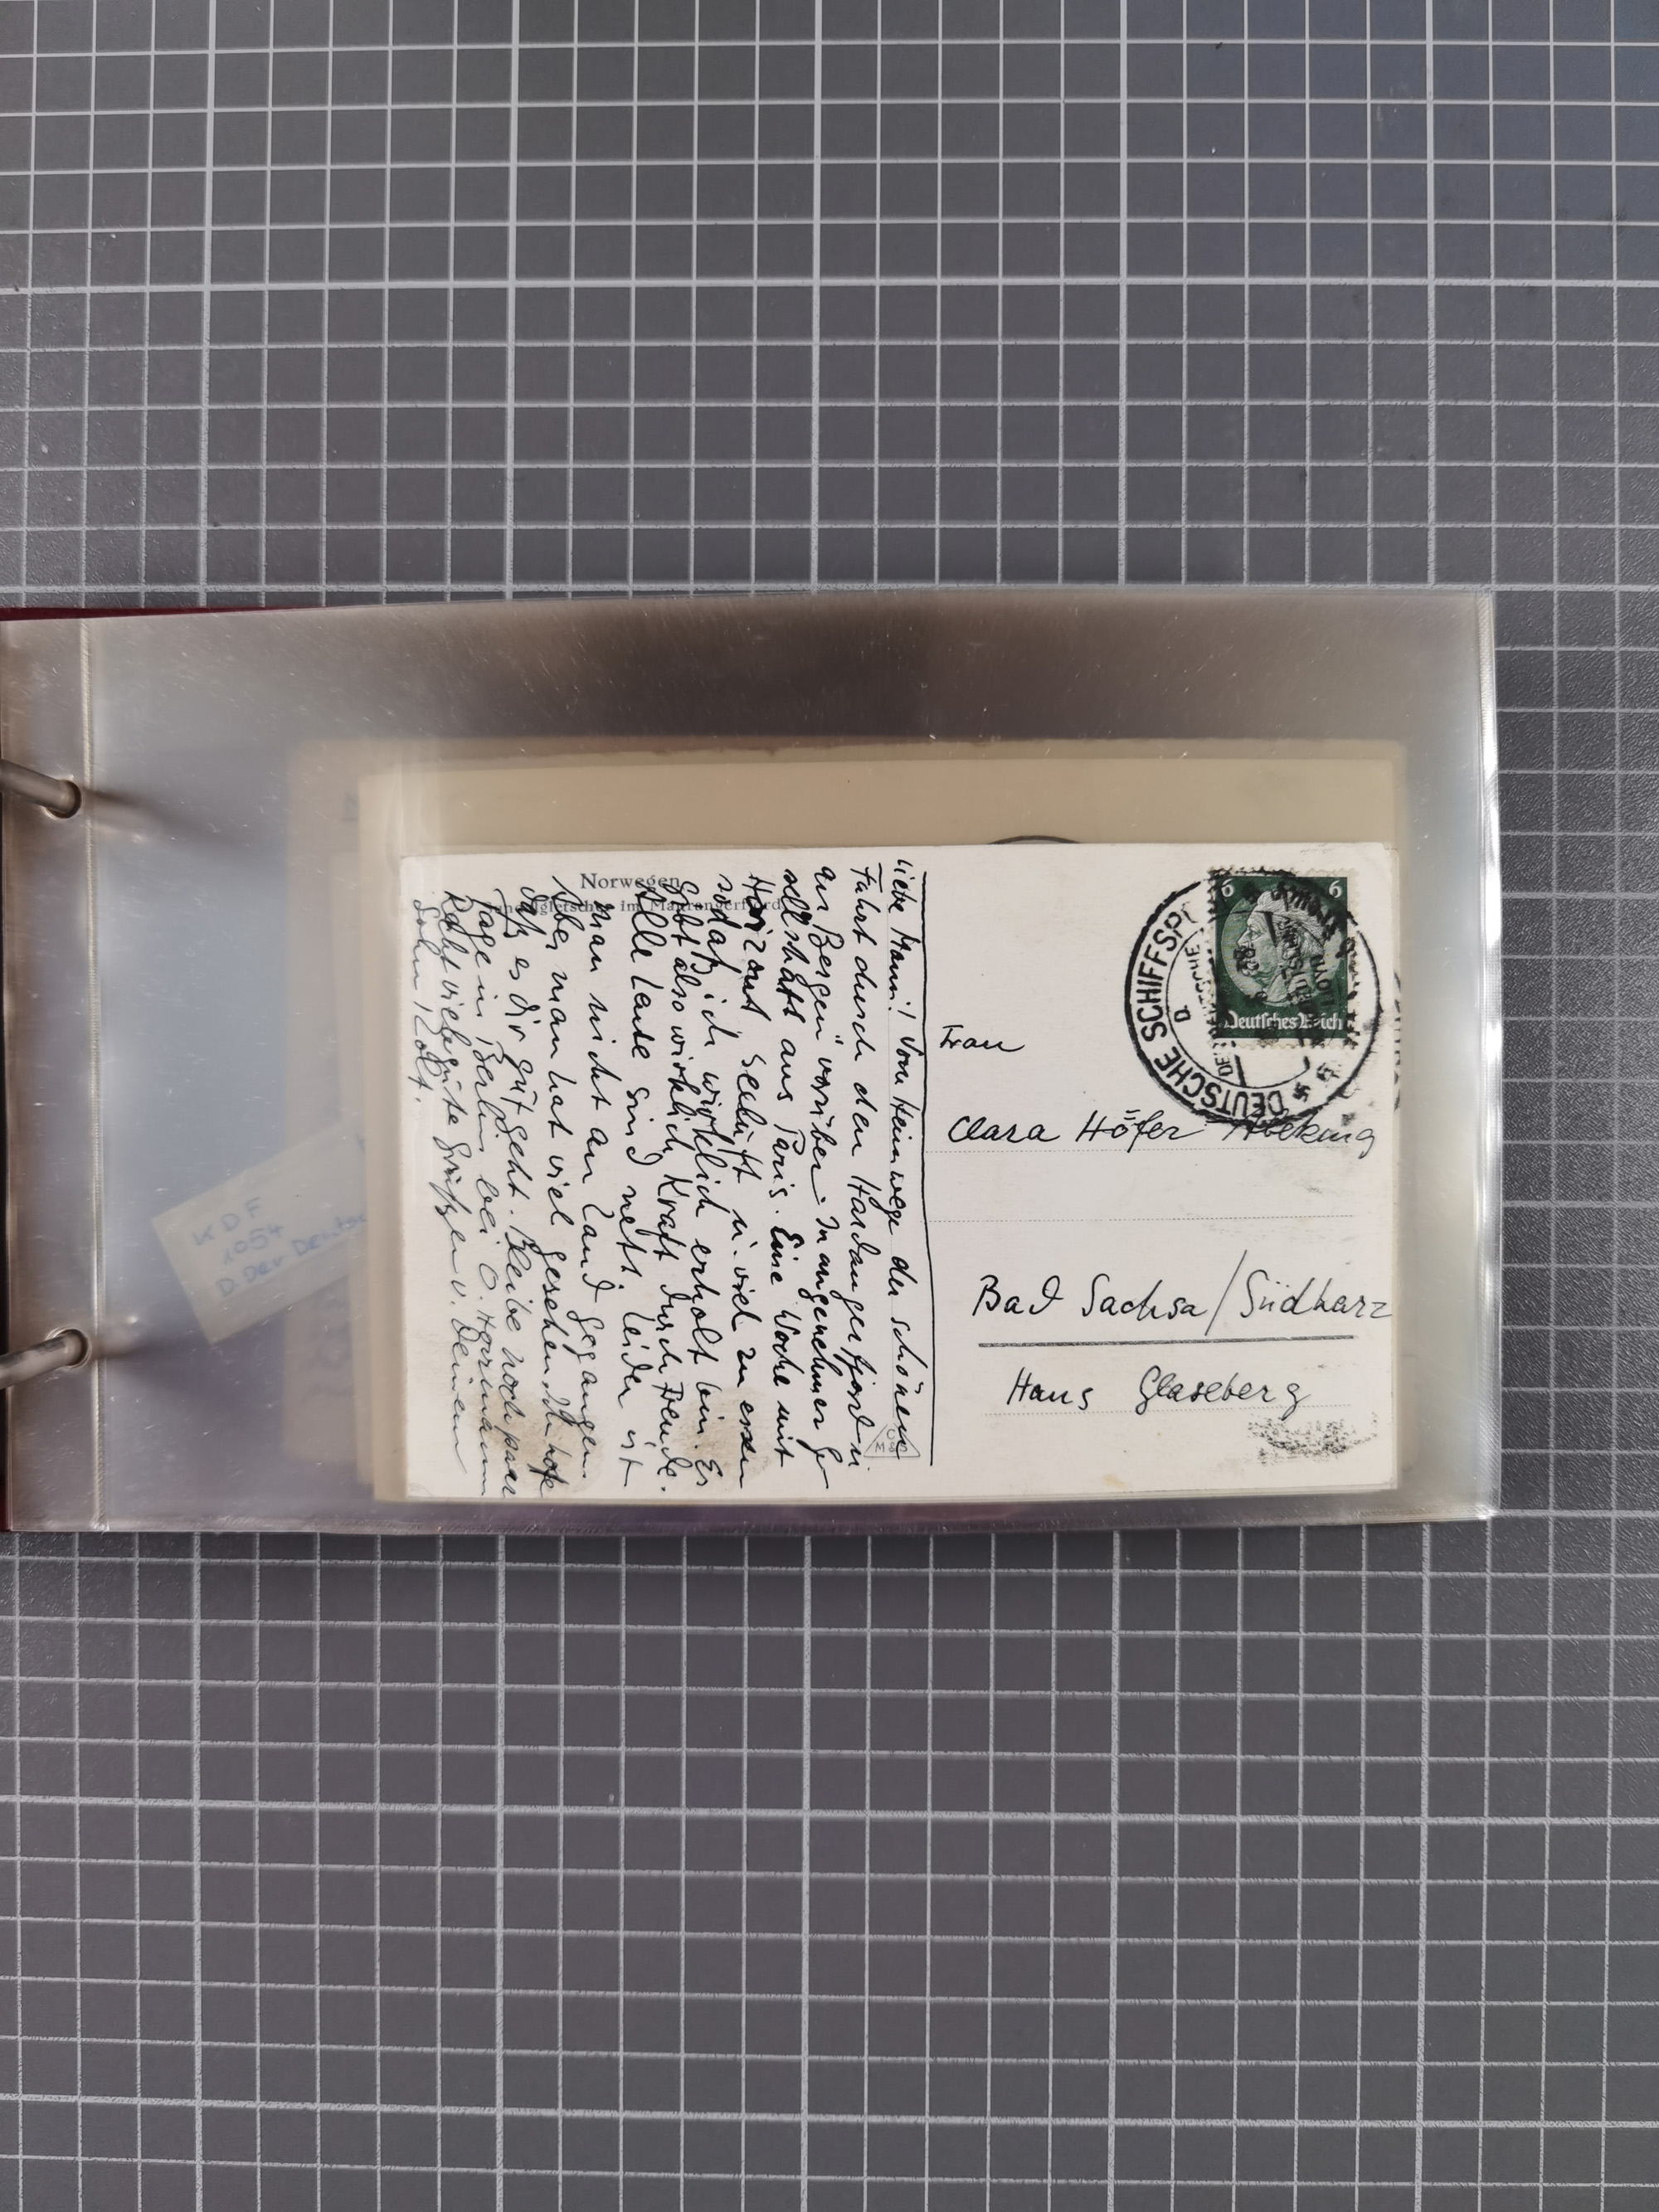 Norwegen
im Maurangerfjord
Liebe Mami! Vom Heimwege der schönen
Fahrt durch den Hardangerfjord u.
an Bergen vorüber in angenehmer Ge-
sellschaft aus Paris. Eine Woche mit
Horizont, Seeluft u. viel zu essen
sodaß ich wirklich erholt bin. Es
gibt also wirklich Kraft durch Freude.
Alle Leute sind nett, leider ist
man nicht an Land gegangen.
Aber man hat viel gesehen. Ich hoffe
daß es dir gut geht. Bleibe noch paar
Tage in Berlin bei O. Herrmann
Recht viele gute Grüße v. Deinem
Sohn
Frau
Clara Höfer
Bad Sachsa/Südharz
Haus Glaseberg
6 6
Deutsches Reich
DEUTSCHE SCHIFFSP
KDF
1054
D. Der Deutsc